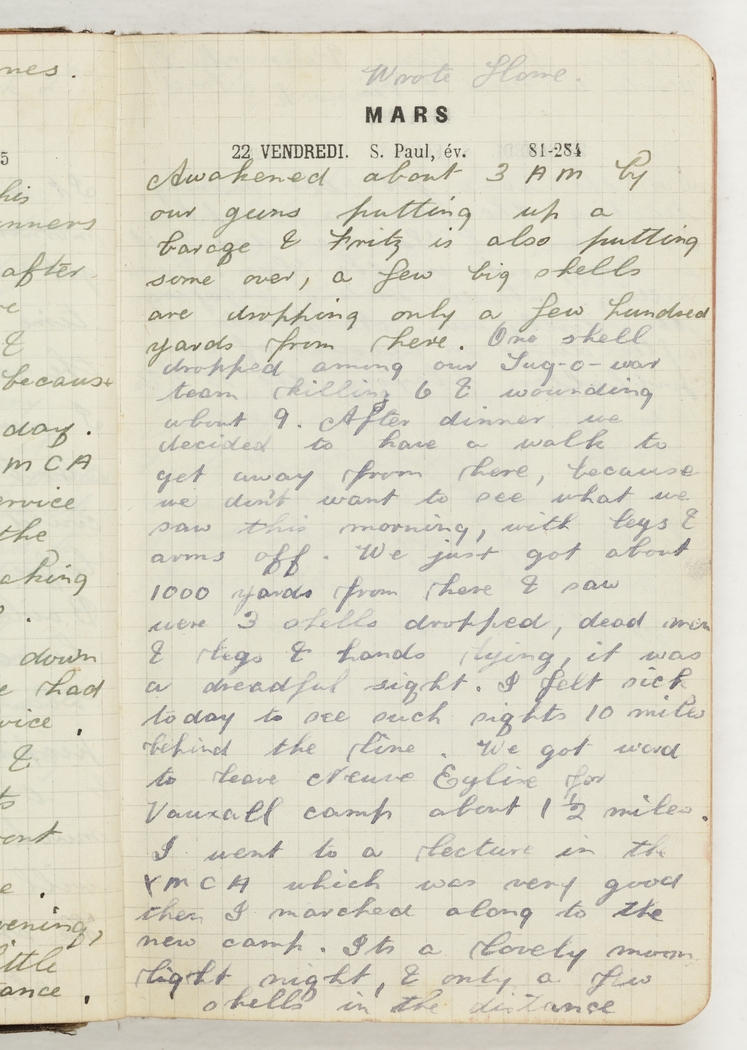 nes.
5
his
nners
after
re
&
because
day.
MCA
ervice
the
aching
.
down
e had
vice.
&
ts
ont
e.
vening,
ittle
ance.
Wrote Home.
MARS
22 VENDREDI. S. Paul, év. 81-284
Awakened about 3 AM by
our guns putting up a
barage & Fritz is also putting
some over, a few big shells
are dropping only a few hundred
yards from here. One shell
dropped among our Tug-o-war
team killing 6 & wounding
about 9. After dinner we
decided to have a walk to
get away from here, because
we don't want to see what we
saw this morning, with legs &
arms off. We just got about
1000 yards from here & saw
were 3 shells dropped, dead men
& legs & hands lying, it was
a dreadful sight. I felt sick
today to see such sights 10 miles
behind the line. We got word
to leave Neuve Eglise for
Vauxall camp about 1 1/2 miles.
I went to a lecture in the
YMCA which was very good
then I marched along to the
new camp. Its a lovely moon
light night, & only a few
shells in the distance